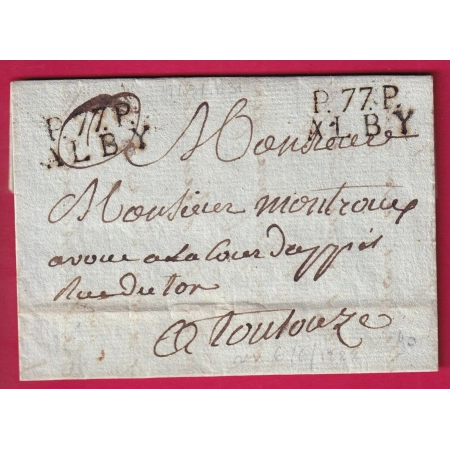 P. 77. P.
ALBY
P. 77. P.
ALBY
Monsieur
Monsieur montroux
avoué a La Cour dappel
Rue du tor
a toulouze